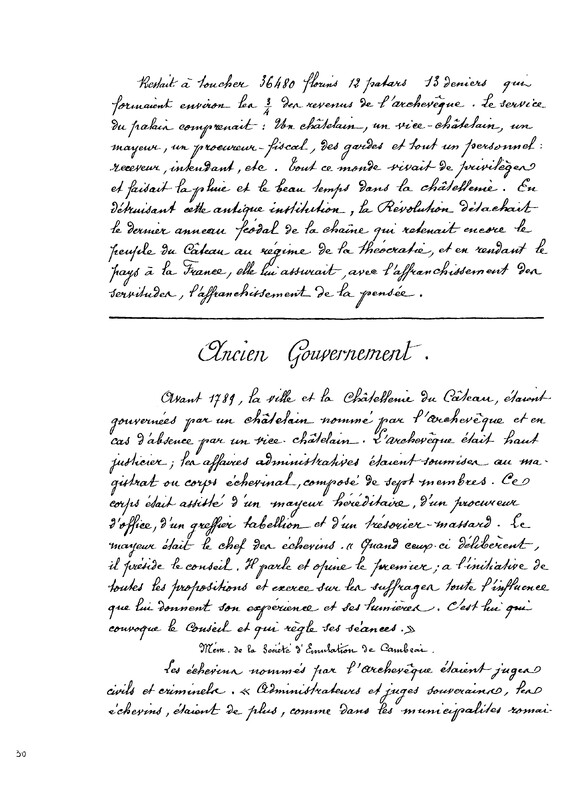 Restait à toucher 36480 florins 12 patars 13 deniers qui
formaient environ les 3/4 des revenus de l'archevêque. Le service
du palais comprenait : Un châtelain, un vice-châtelain, un
mayeur, un procureur-fiscal, des gardes et tout un personnel :
receveur, intendant, etc. Tout ce monde vivait de privilèges
et faisait la pluie et le beau temps dans la châtellenie. En
détruisant cette antique institution, la Révolution détachait
le dernier anneau féodal de la chaîne qui retenait encore le
peuple du Câteau au régime de la théocratie, et en rendant le
pays à la France, elle lui assurait, avec l'affranchissement des
servitudes, l'affranchissement de la pensée.
Ancien Gouvernement.
Avant 1789, la ville et la Châtellenie du Câteau, étaient
gouvernées par un châtelain nommé par l'archevêque et en
cas d'absence par un vice-châtelain. L'archevêque était haut
justicier ; les affaires administratives étaient soumises au ma-
gistrat ou corps échevinal, composé de sept membres. Ce
corps était assisté d'un mayeur héréditaire, d'un procureur
d'office, d'un greffier tabellion et d'un trésorier-massard. Le
mayeur était le chef des échevins. « Quand ceux-ci délibèrent,
il préside le conseil. Il parle et opine le premier ; a l'initiative de
toutes les propositions et exerce sur les suffrages toute l'influence
que lui donnent son expérience et ses lumières. C'est lui qui
convoque le Conseil et qui règle ses séances. »
Mém. de la Société d'Emulation de Cambrai.
Les échevins nommés par l'archevêque étaient juges
civils et criminels. « Administrateurs et juges souverains, les
échevins, étaient de plus, comme dans les municipalités romai-
50